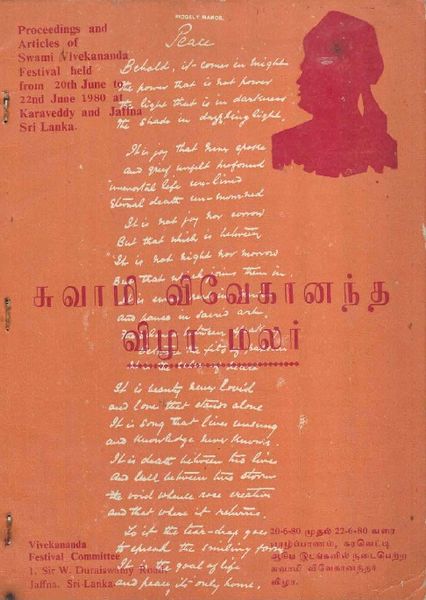 Proceedings and
Articles of
Swami Vivekananda
Festival held
from 20th June to
22nd June 1980 at
Karaveddy and Jaffna
Sri Lanka.
RIDGELY MANOR.
Peace
Behold, it comes in might
the power that is not power
the light that is in darkness
the shade in dazzling light.
It is joy that never spoke
and grief unfelt profound
immortal life un-lived
Eternal death un-mourned
It is not joy nor sorrow
But that which is between
It is not night nor morrow
But that which joins them in.
and pause in sacred art
சுவாமி விவேகானந்த
விழா மலர்
It is beauty never loved
and love that stands alone
It is song that lives unsung
and Knowledge never Known.
It is death between two lives
and lull between two storms
the void whence rose creation
and that where it returns.
To it the tear-drop goes
to spread the smiling form
It is the goal of life
and peace its only home.
Vivekananda
Festival Committee
1, Sir W. Duraiswamy Road
Jaffna. Sri-Lanka
20-6-80 முதல் 22-6-80 வரை
யாழ்ப்பாணம், கரவெட்டி
ஆகிய இடங்களில் நடைபெற்ற
சுவாமி விவேகானந்தர்
விழா.